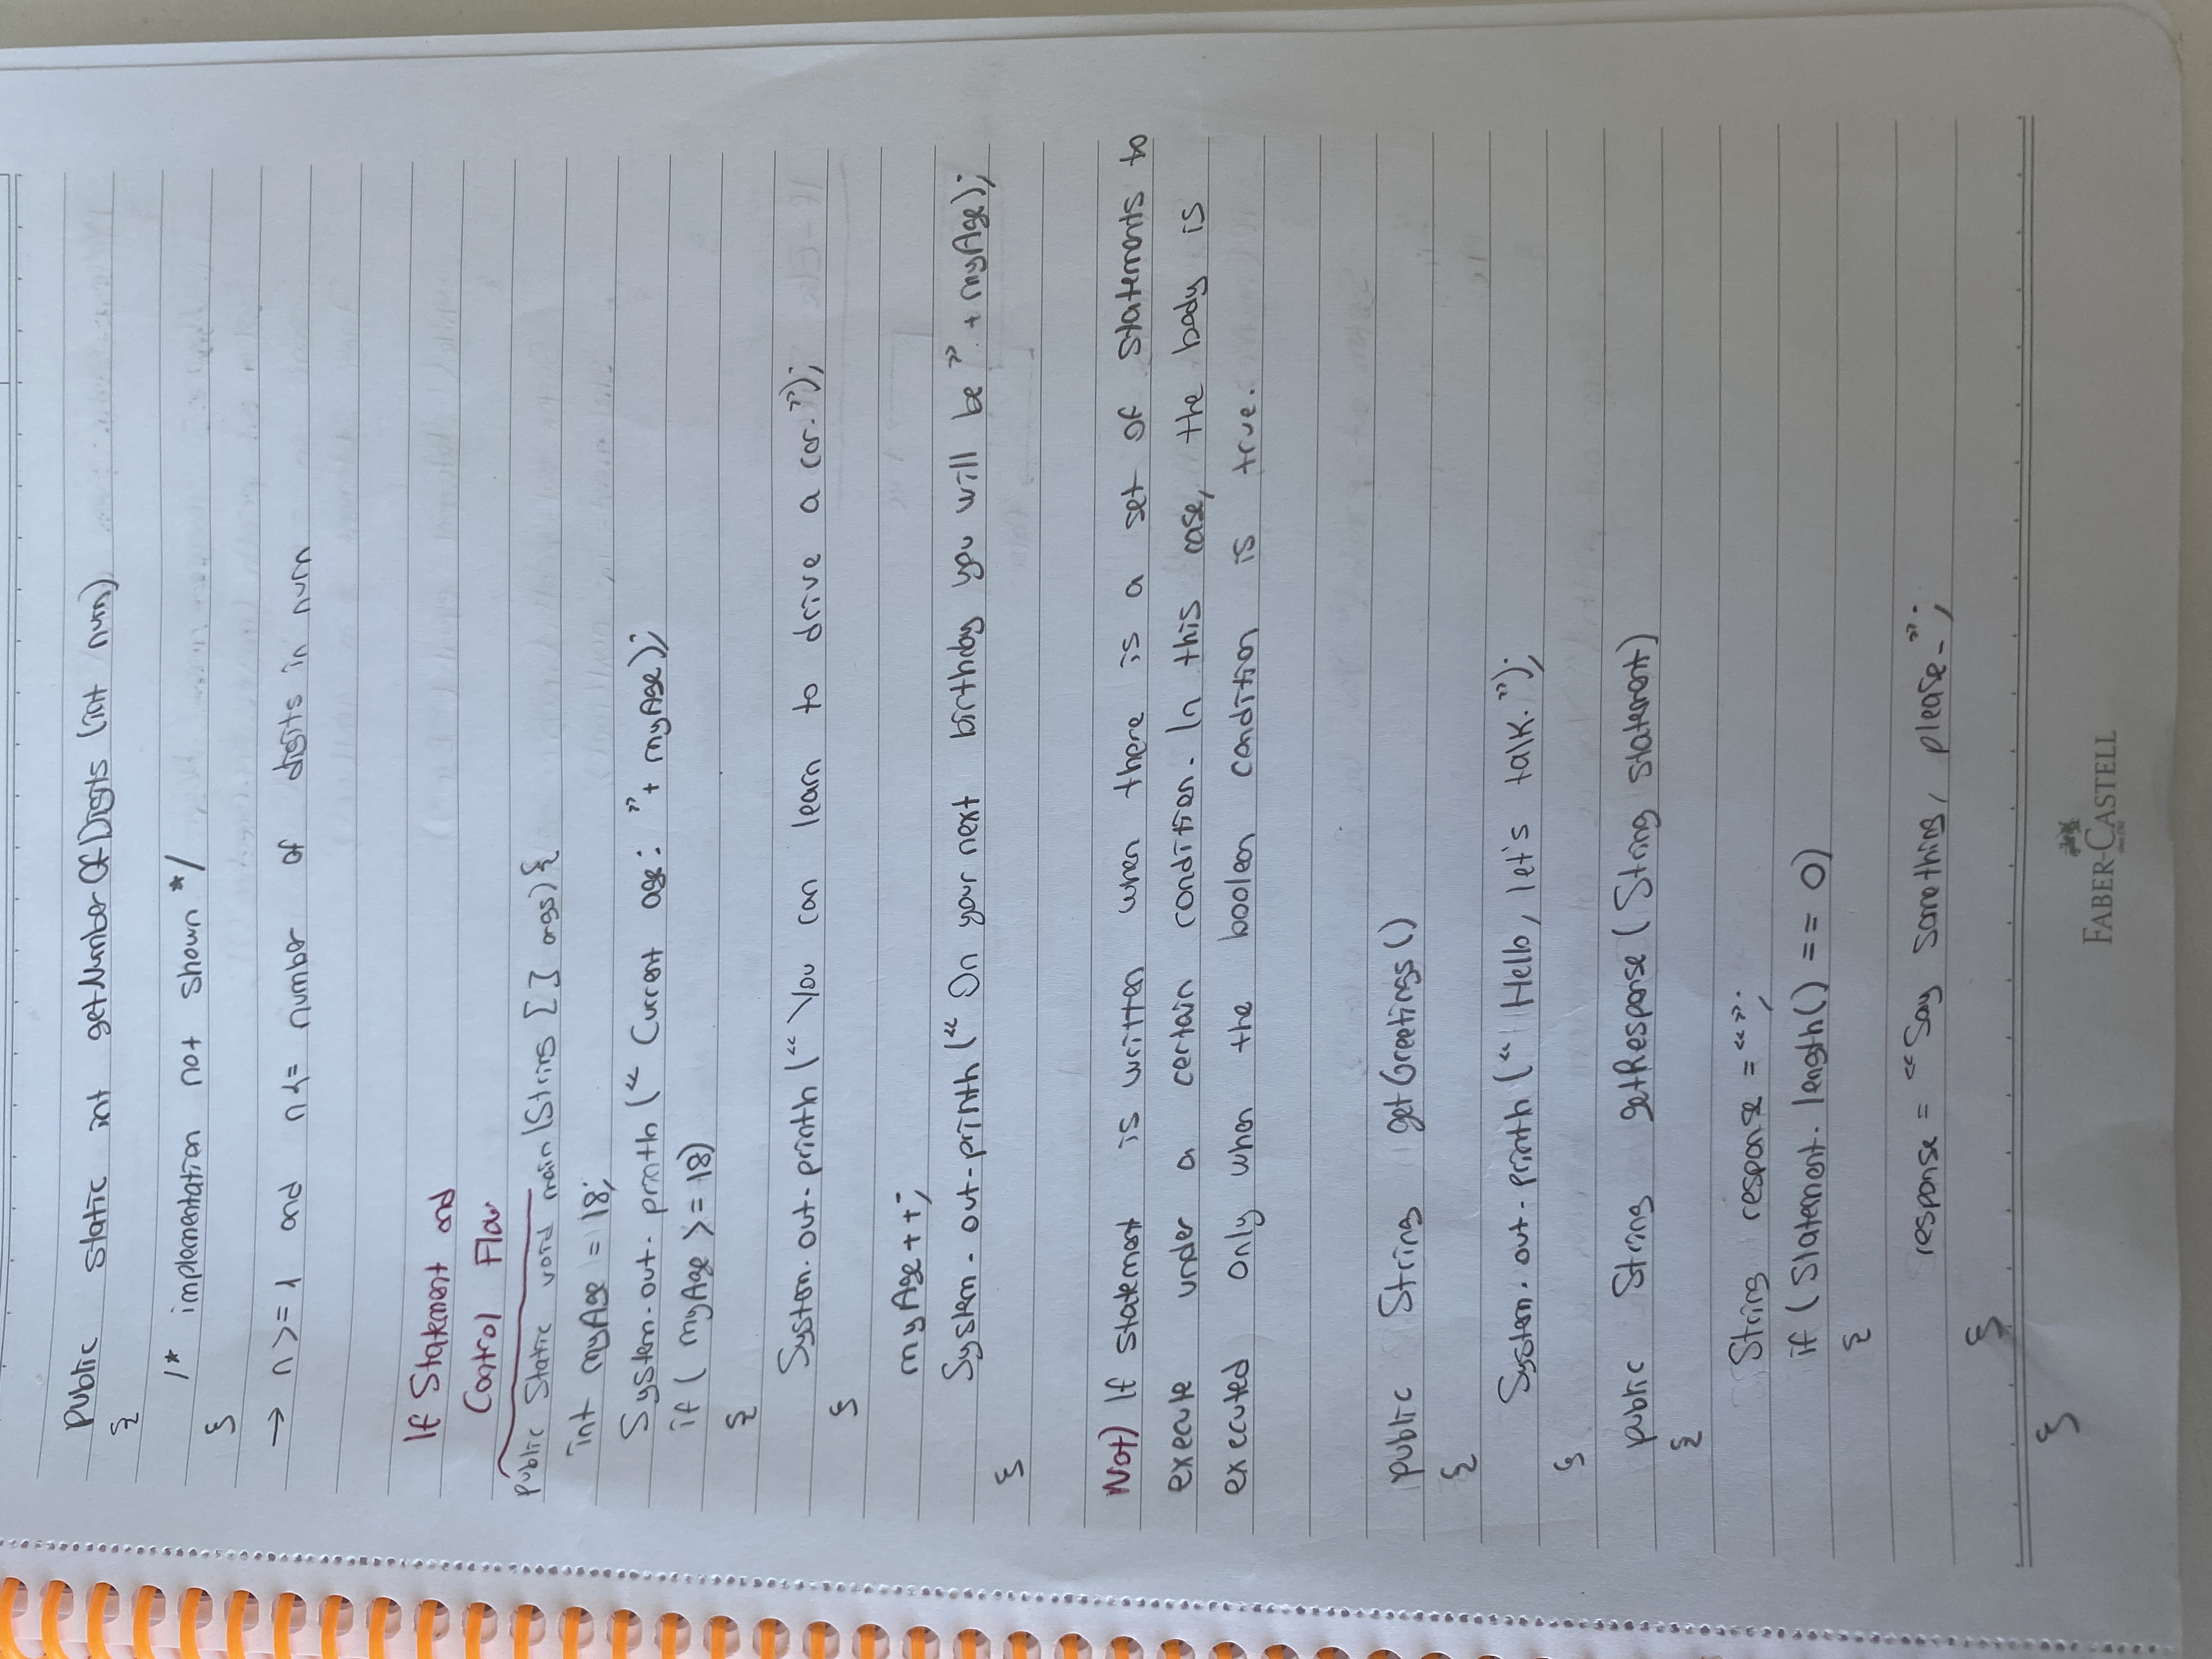 public static int getNumberOfDigits (int num)
{
/* implementation not shown */
}
→ n >= 1 and n <= number of digits in num
If Statement and
Control Flow
public static void main (String [] args) {
int myAge = 18;
System.out.println (“ Current age: ” + myAge);
if ( myAge >= 18)
{
System.out.println (“ You can learn to drive a car.”);
}
myAge++;
System.out.println (“ On your next birthday you will be ” + myAge);
}
Not) If statement is written when there is a set of statements to
execute under a certain condition. In this case, the body is
executed only when the boolean condition is true.
public String getGreetings ()
{
System.out.println (“ Hello, let's talk. ”);
}
public String getResponse ( String statement)
{
String response = “ ”;
if ( Statement. length() == 0)
{
response = “ Say something, please.”;
}
}
FABER-CASTELL
since 1761